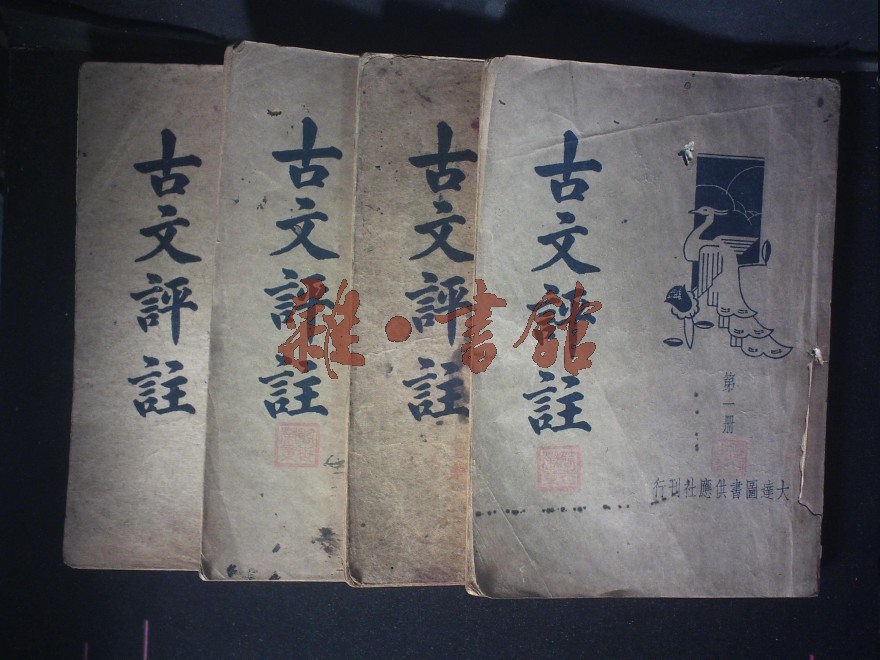 古文評註
古文評註
古文評註
古文評註
第一册
大達圖書供應社刊行
雜·書館